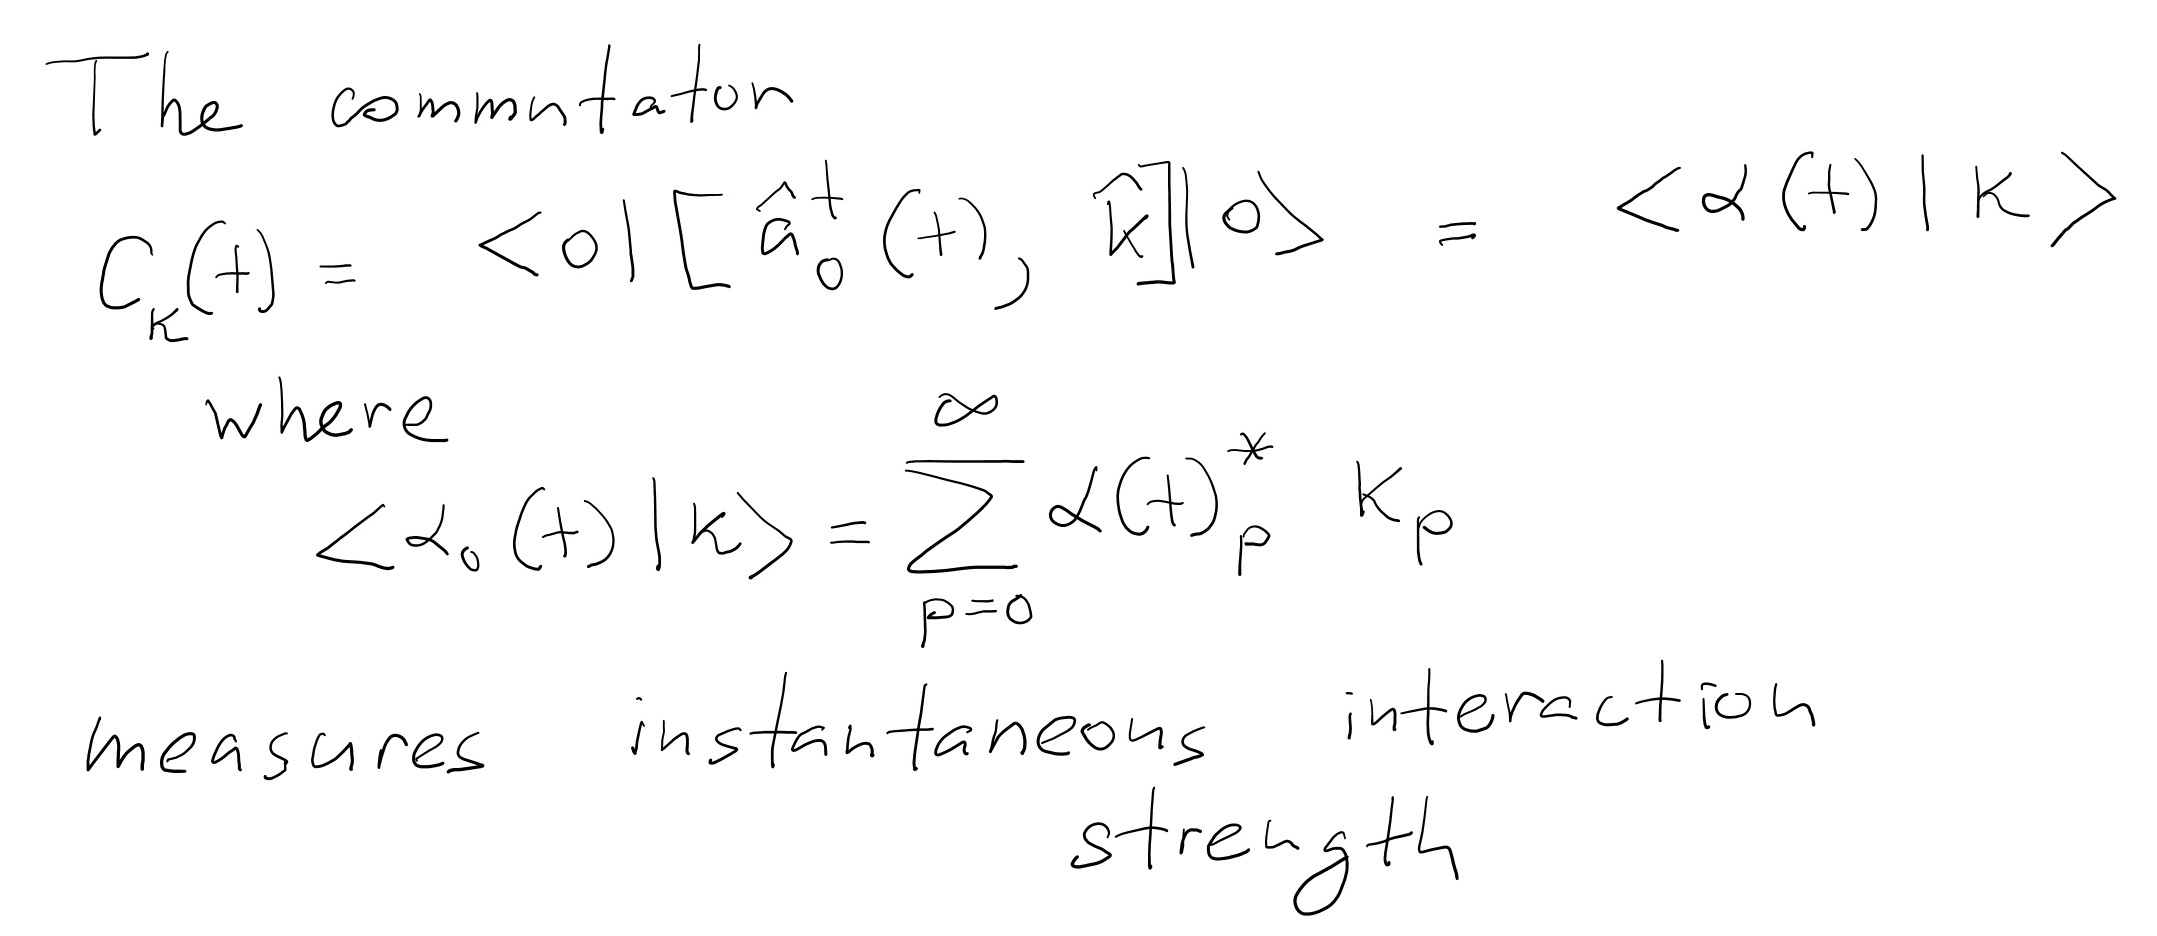 The commutator
C_k(t) = <0|[â_0^†(t), k̂]|0> = <α(t)|k>
where
<α_0(t)|k> = ∑_{p=0}^{∞} α(t)_p^* k_p
measures instantaneous interaction
strength